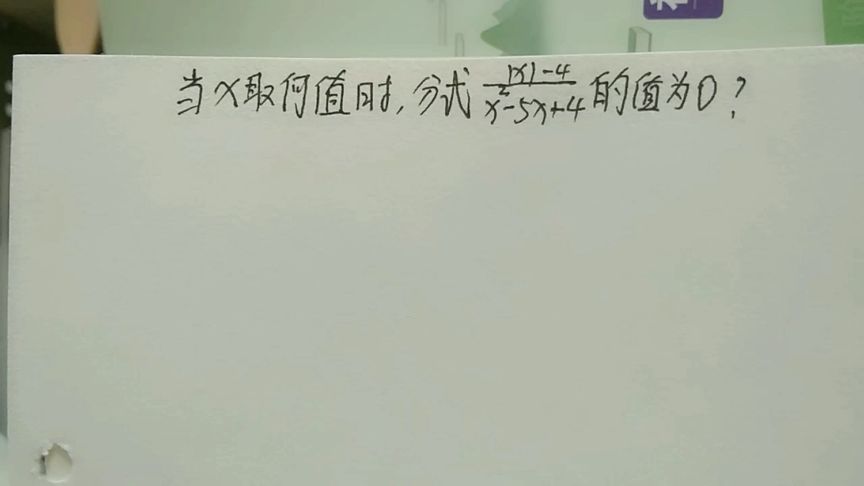 当x取何值时,分式 |x|-4 / x²-5x+4 的值为0?